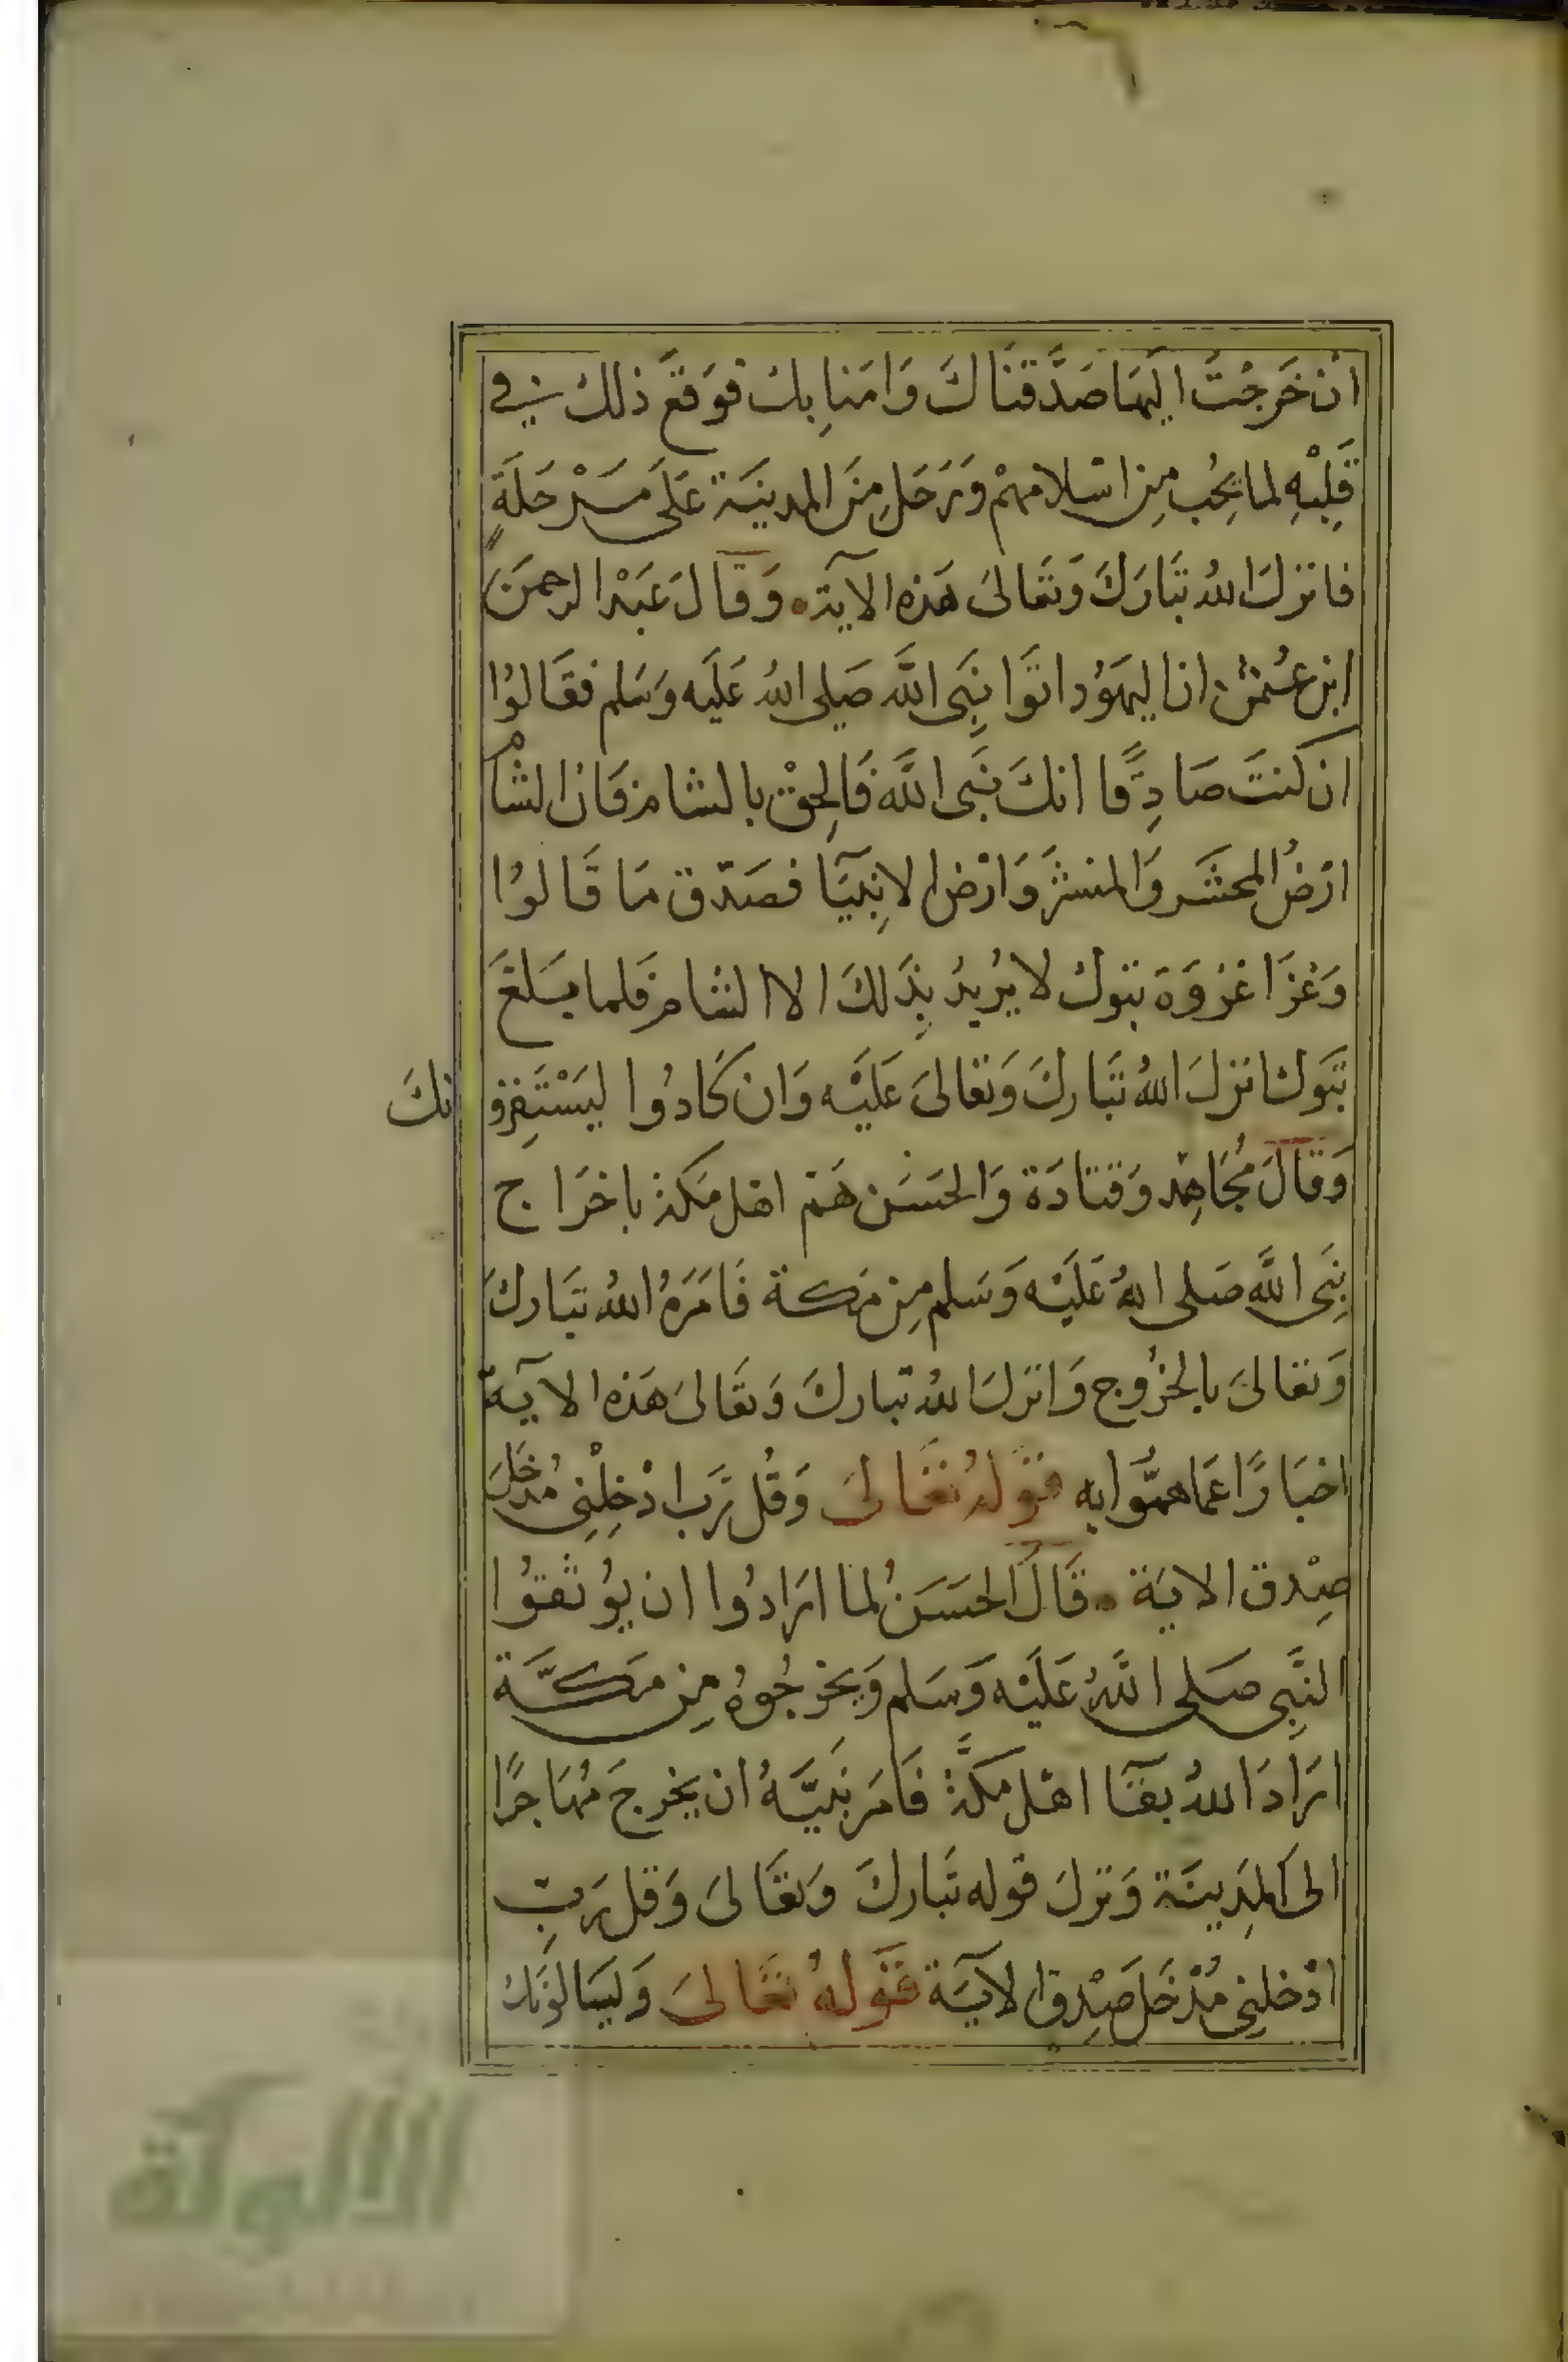 ان خَرَجْتَ اليهَا صَدَّقنَاكَ وَامَنا بِكَ فوَقعَ ذلك في
قَلِبْهِ لما يُحِب مِن اسْلامهمْ وَرَحَلِ مِنَ المدينَة عَلَى مَرْحَلَةٍ
فانزلَ اللهُ تبَارَكَ وَتعَالىَ هَذه الآيَة وَقالَ عَبْد الرحمنَ
ابن عُثمن ان اليهَوُد اتَوا نِبَى اللَّه صَلى اللهُ عَليَه وَسَلم فقَالوُا
ان كنتَ صَادِقًا انكَ نَبَى اللَّه فَالِحقْ بالشام فَان الشامْ
ارْضُ المحشَر وَالمنشَر وَارْض الانِبيَآ فصَدّق مَا قَالوُا
وَغزَا غزوَة تبوك لا يُريدُ بِذَلكَ الا الشام فَلما بَلغَ
تَبوك انزلَ اللهُ تبَاركَ وَتعالىَ عَليَه وَان كَادوُا ليَسْتَفِزو نكَ
وَقالَ مُجَاهِد وَقتادَة وَالحسَن هَمّ اهل مَكة باخرَاج
نِبَى اللَّه صَلى اللهُ عَليَه وَسَلم مِن مَكة فَامَرَهُ اللهُ تبَاركَ
وَتعالىَ بالخرُوج وَانزلَ اللهُ تبارَكَ وَتعَالىَ هَذه الآيَة
اخبَارًا عَما همُّوا به قوَلهُ تعَالىَ وَقُل رَب ادْخِلْنِى مُدخَلَ
صِدْق الايَة قَالَ الحسَنُ لما ارَادُوا ان يوُثقوُا
النَّبِى صَلى اللَّهُ عَليَه وَسَلم وَيخرجُوهُ مِن مَكَّة
ارَادَ اللهُ بقآ اهْل مَكَّة فَامَر نَبيَّهُ ان يخرجَ مُهَاجرًا
الى المدِينَة وَنزلَ قوله تَبَاركَ وَتعَالىَ وَقل رَبِّ
ادْخلنِى مُدْخَلَ صِدْق الآيَة قوَلهُ تعَالىَ وَليسَالوَنكَ
الألوكة